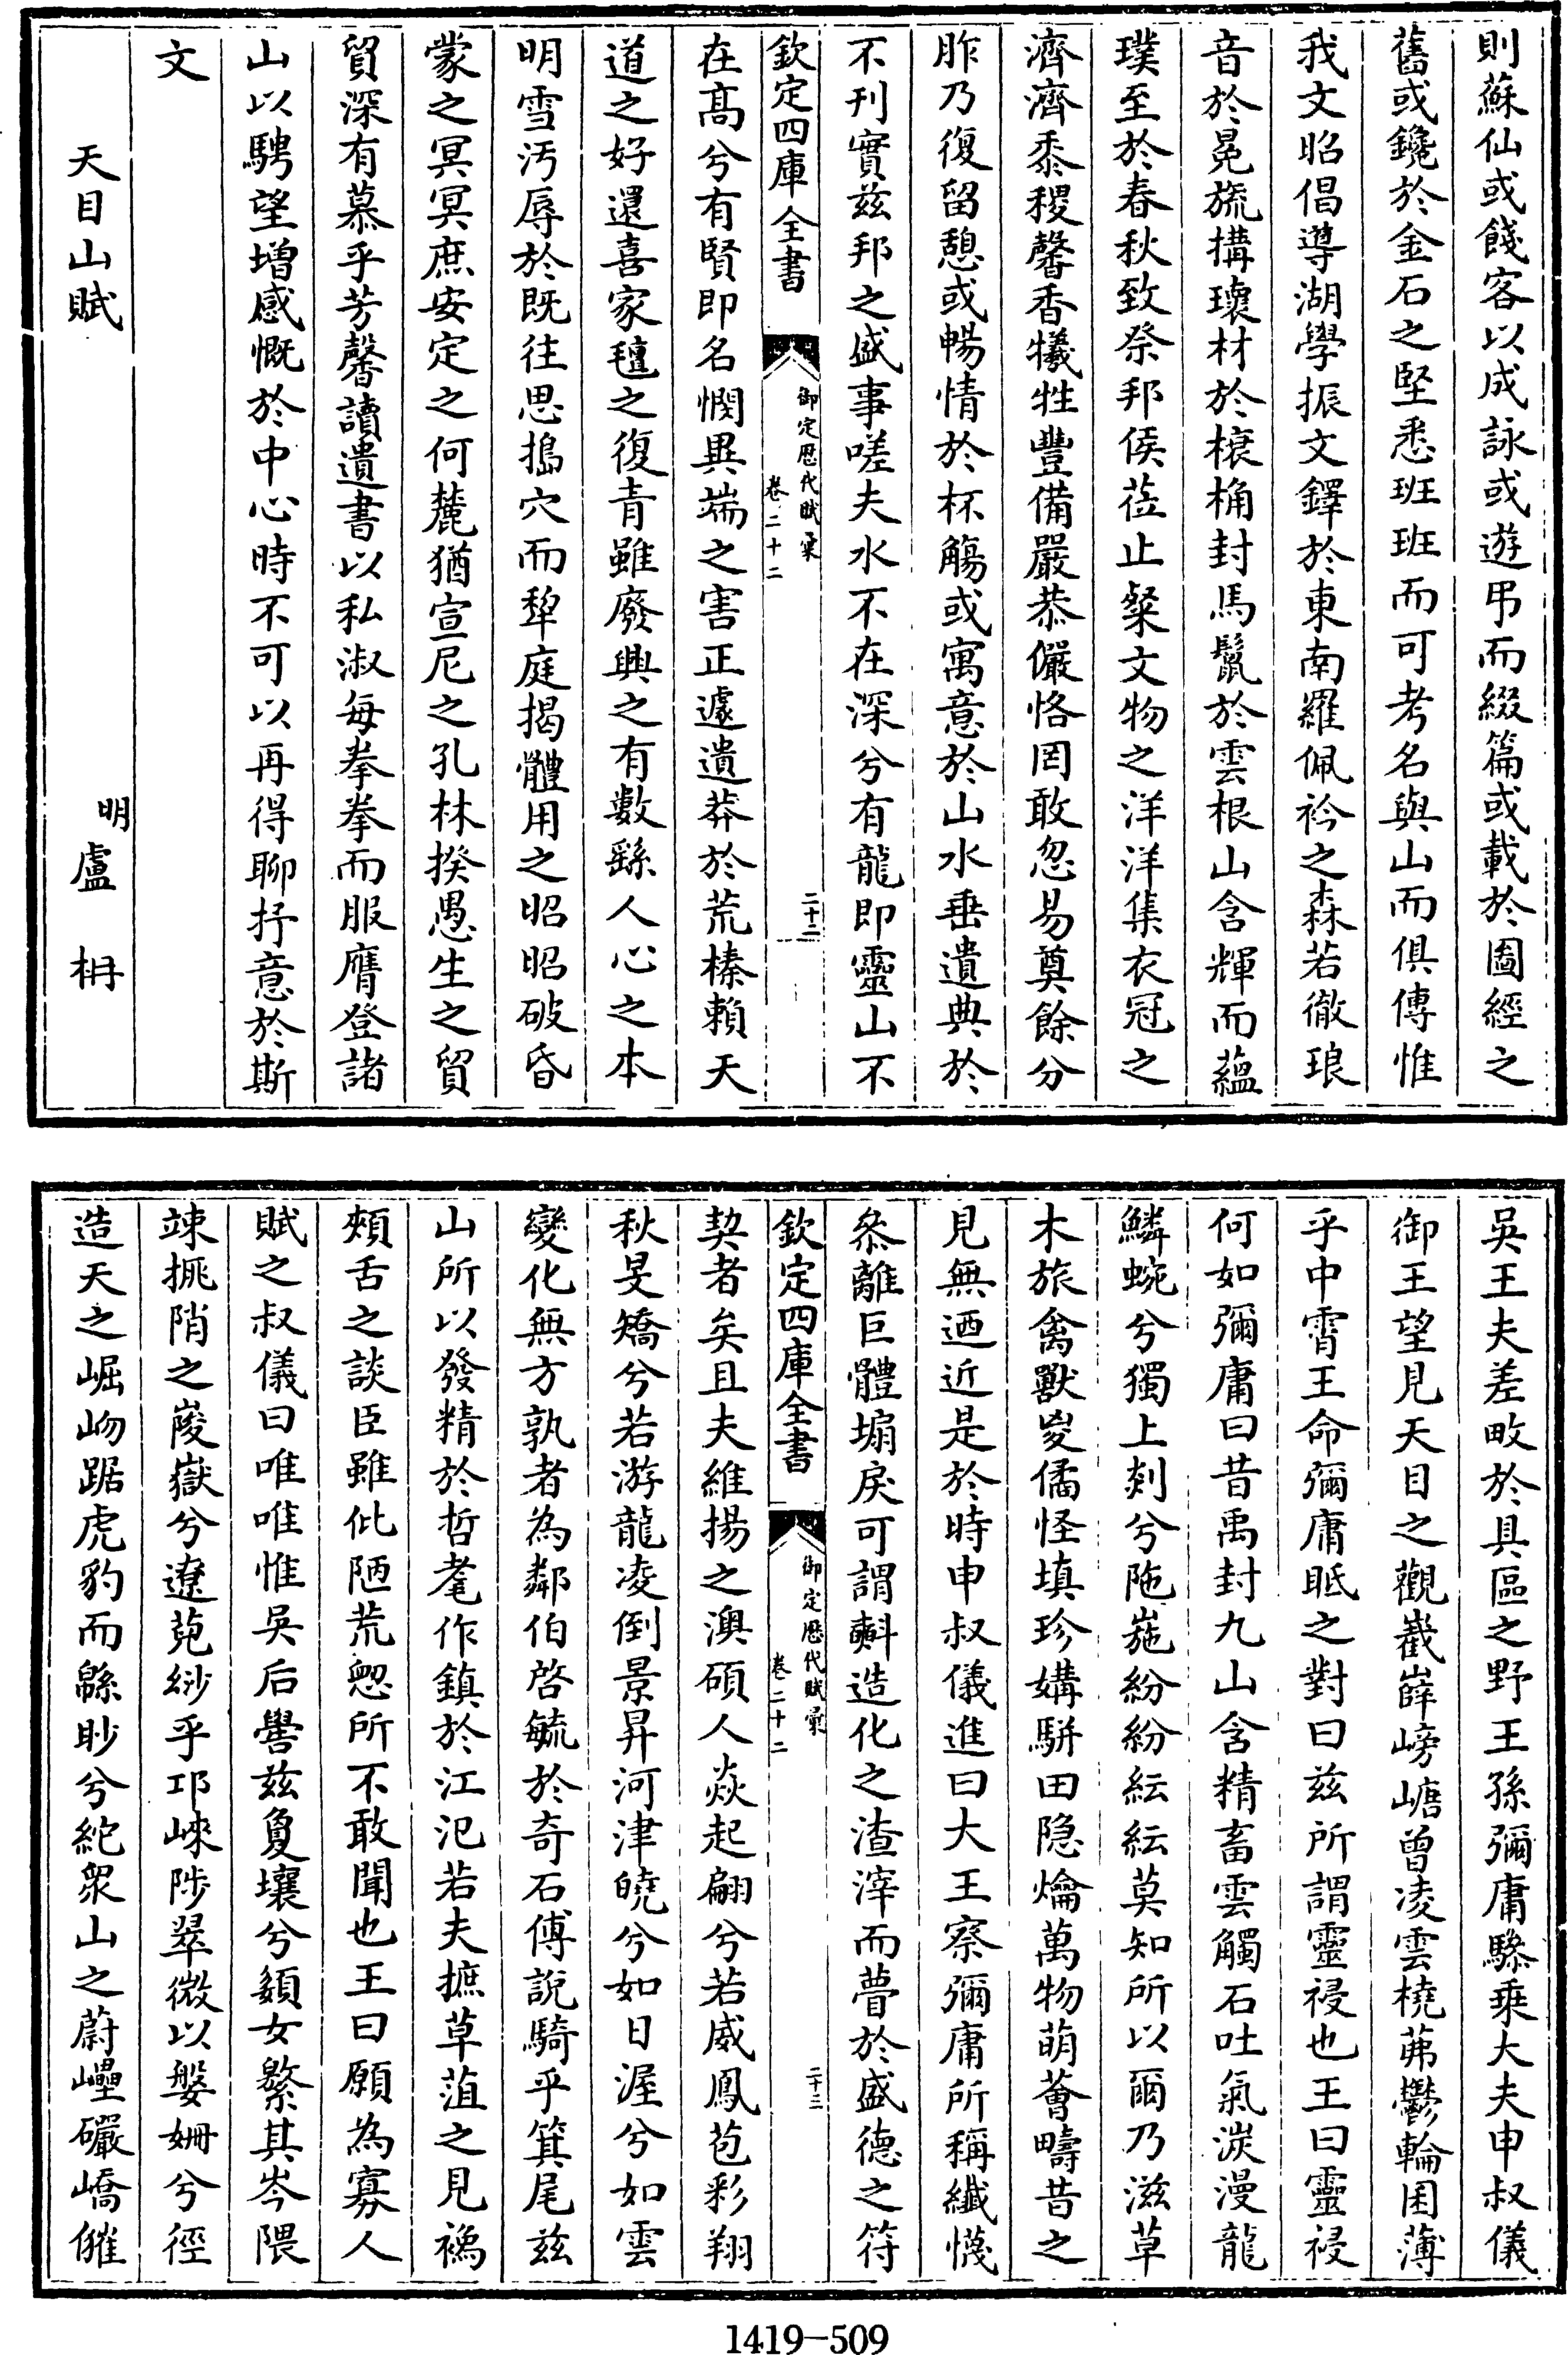 則蘇仙或餞客以成詠或遊弔而綴篇或載於圖經之
舊或鑱於金石之堅悉班班而可考名與山而俱傳惟
我文昭倡導湖學振文鐸於東南羅佩衿之森若徹琅
音於冕旒搆瓌材於榱桷封馬鬛於雲根山含輝而蘊
璞至於春秋致祭邦侯蒞止粲文物之洋洋集衣冠之
濟濟黍稷馨香犧牲豐備嚴恭儼恪罔敢忽易奠餘分
胙乃復留憩或暢情於杯觴或寓意於山水垂遺典於
不刊實兹邦之盛事嗟夫水不在深兮有龍即靈山不
欽定四庫全書
御定歷代賦彚
卷二十二
二十二
在髙兮有賢即名憫異端之害正遽遺莽於荒榛賴天
道之好還喜家氊之復青雖廢興之有數繇人心之本
明雪汚辱於既往思搗穴而犂庭揭體用之昭昭破昏
蒙之冥冥庶安定之何麓猶宣尼之孔林揆愚生之貿
貿深有慕乎芳馨讀遺書以私淑每拳拳而服膺登諸
山以騁望增感慨於中心時不可以再得聊抒意於斯
文
天目山賦
明盧柟
吳王夫差畋於具區之野王孫彌庸驂乗大夫申叔儀
御王望見天目之觀嶻嶭嵭嵣曾凌雲橈茀鬱輪囷薄
乎中霄王命彌庸眡之對曰兹所謂靈祲也王曰靈祲
何如彌庸曰昔禹封九山含精畜雲觸石吐氣淡漫龍
鱗蜿兮獨上剡兮陁崺紛紛紜紜莫知所以爾乃滋草
木旅禽獸嵏僪怪填珍媾駢田隐爚萬物萌薈疇昔之
見無迺近是於時申叔儀進曰大王察彌庸所稱纎懱
叅離巨體塌戾可謂斞造化之渣滓而瞢於盛德之符
欽定四庫全書
御定歷代賦彚
卷二十二
二十三
契者矣且夫維揚之澳碩人焱起翩兮若威鳳苞彩翔
秋旻矯兮若游龍凌倒景昇河津皢兮如日渥兮如雲
變化無方孰者為鄰伯啓毓於奇石傅說騎乎箕尾兹
山所以發精於哲耄作鎮於江汜若夫摭草菹之見襘
頰舌之談臣雖仳陋荒愡所不敢聞也王曰願為寡人
賦之叔儀曰唯唯惟吳后嚳兹敻壤兮纇女藙其岑隈
竦挑陗之崚嶽兮遼菀紗乎邛崍陟翠微以媻姗兮徑
造天之崛岉踞虎豹而緜眇兮紽衆山之蔚壘礹嶠傕
1419-509